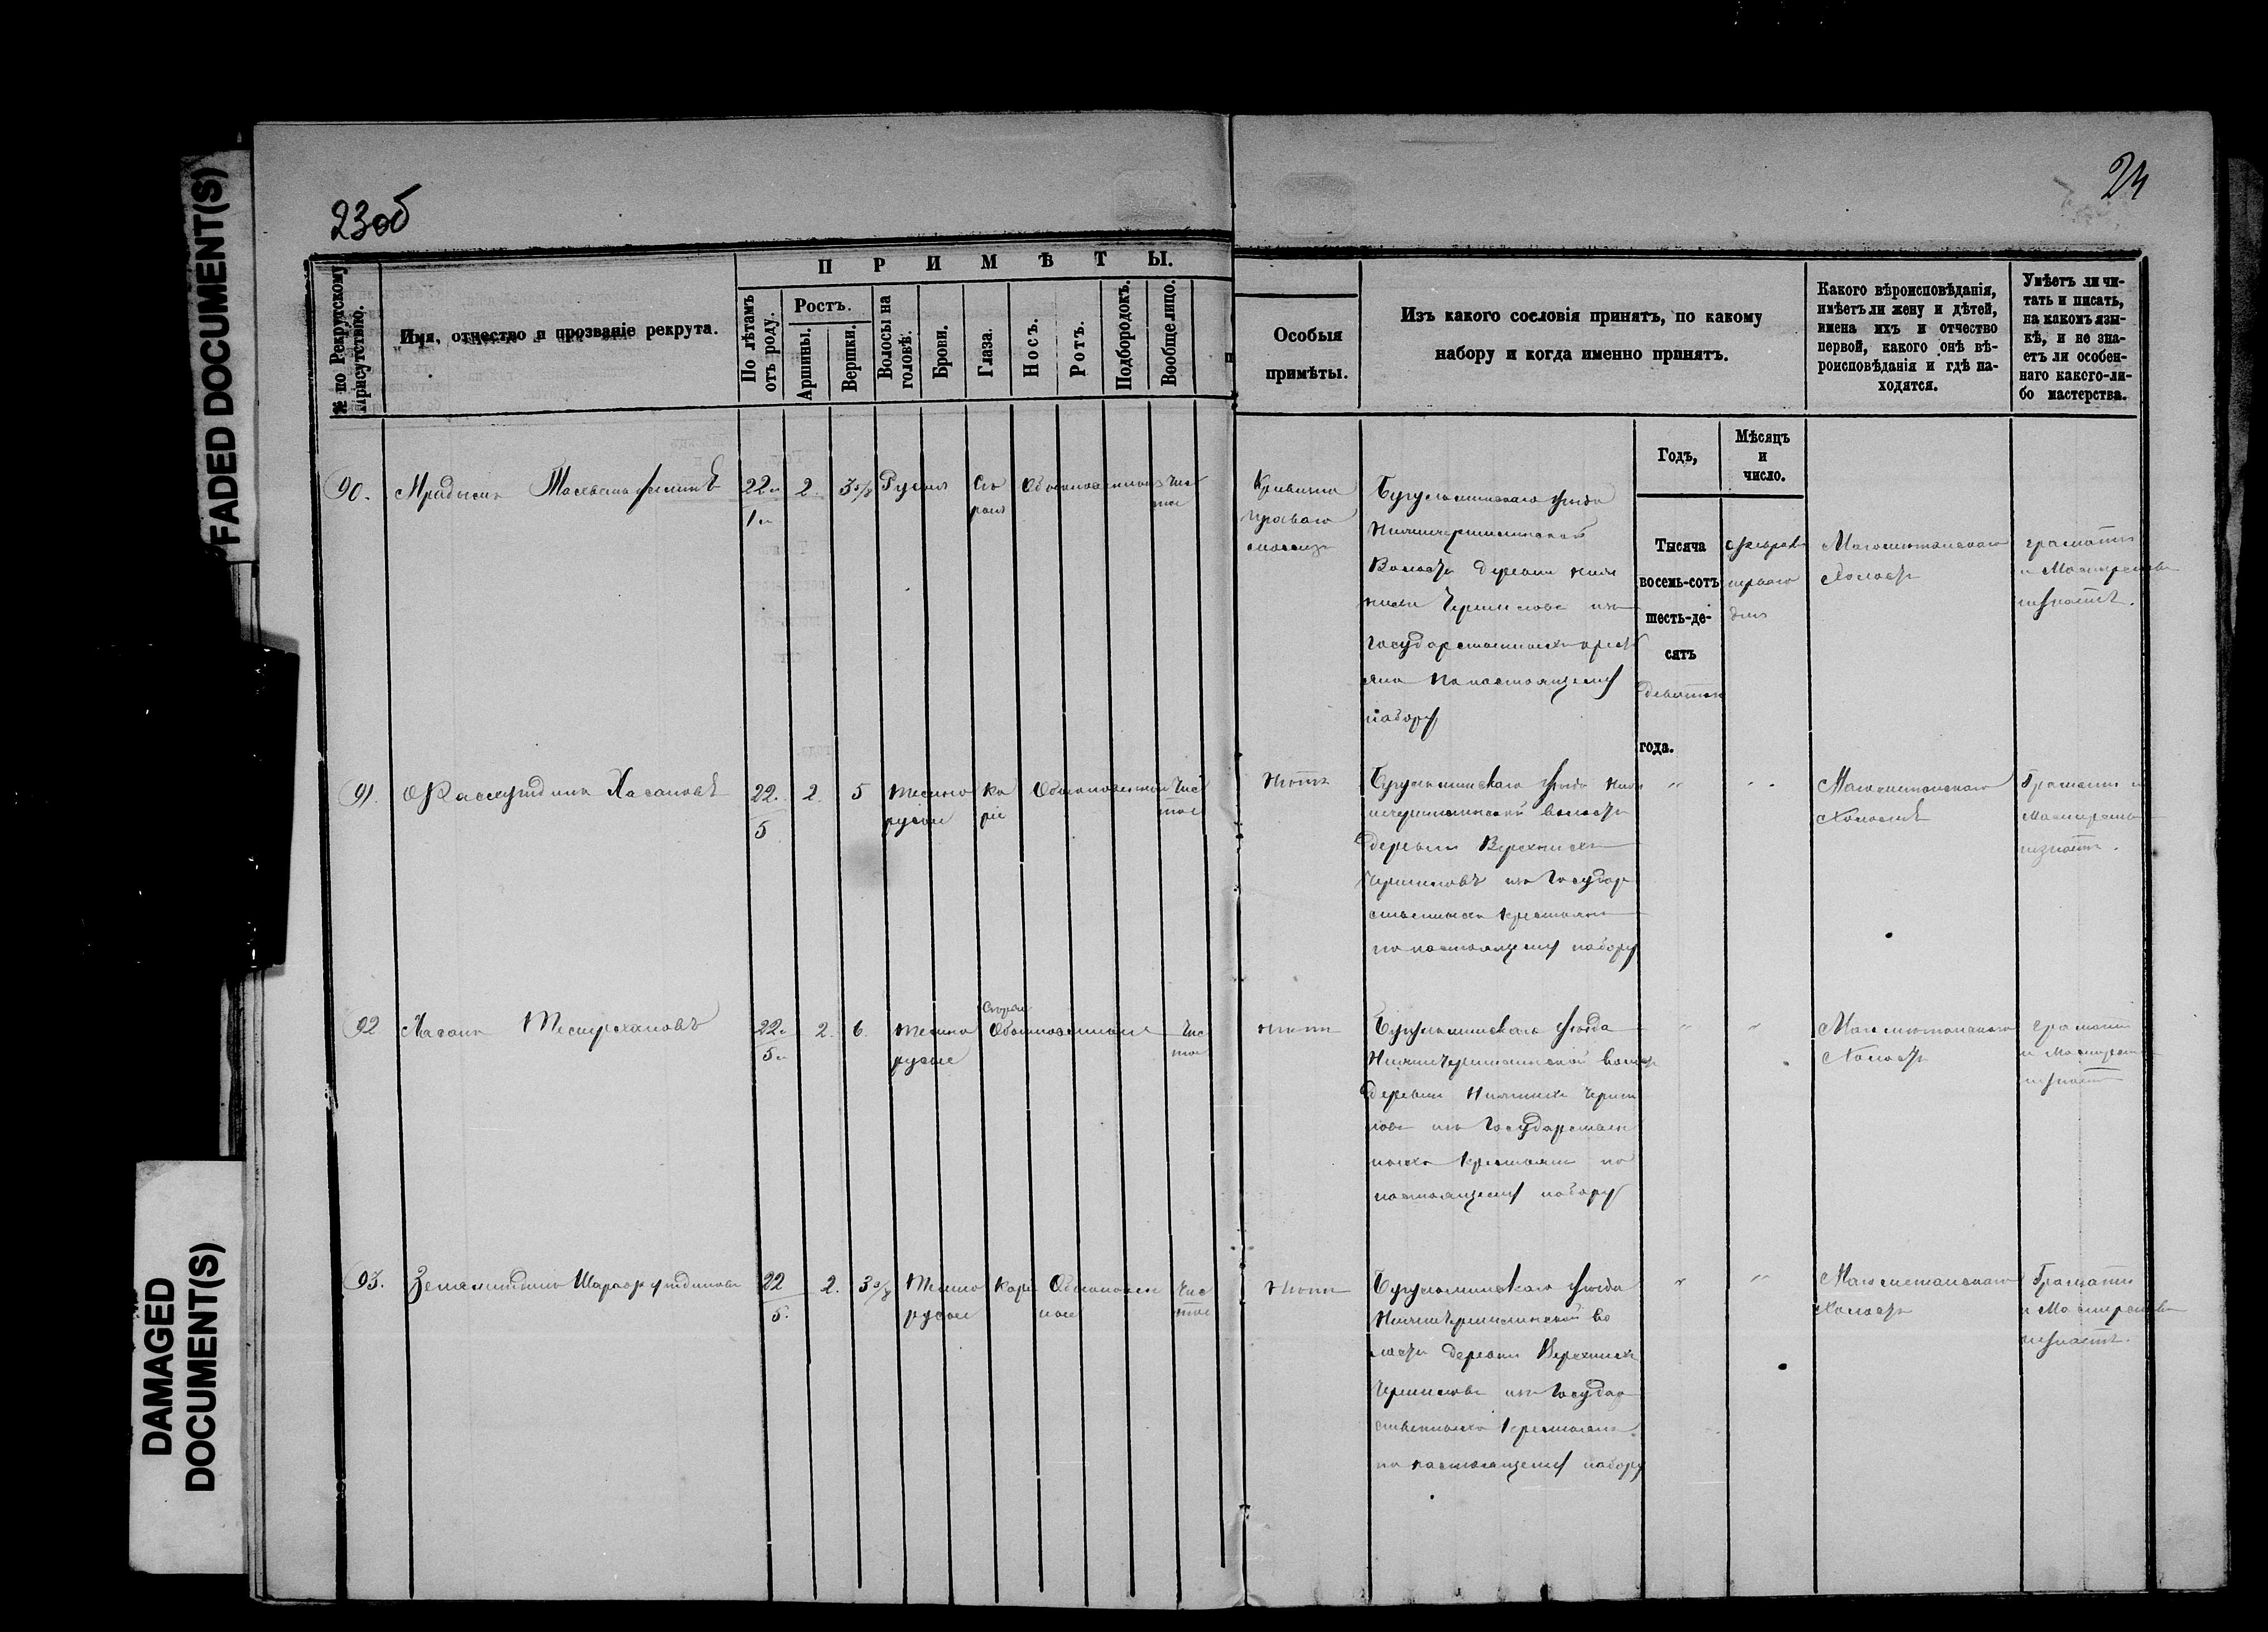 FADED DOCUMENT(S)
DAMAGED
DOCUMENT(S)
23об
24
№ по Рекрутскому присутствію.
Имя, отчество и прозваніе рекрута.
ПРИМѢТЫ.
По лѣтамъ отъ роду.
Ростъ.
Аршины.
Вершки.
Волосы на головѣ.
Брови.
Глаза.
Носъ.
Ротъ.
Подбородокъ.
Вообще лицо.
Особыя
примѣты.
Изъ какого сословія принятъ, по какому
набору и когда именно принятъ.
Какого вѣроисповѣданія,
имѣетъ ли жену и дѣтей,
имена ихъ и отчество
первой, какого онѣ вѣ-
роисповѣданія и гдѣ на-
ходятся.
Умѣетъ ли чи-
тать и писать,
на какомъ язы-
кѣ, и не зна-
етъ ли особен-
наго какого-ли-
бо мастерства.
Годъ,
Мѣсяцъ
и
число.
90.
22
1
2.
3 5/8
Русыя
Сѣ
рыя
Обыкновенныя
Чис
тое
Кривизна
праваго
Бугульминскаго уѣзда
Нижнечершилинской
Волости деревни Ниж
нихъ Чершиловъ изъ
Государственныхъ крест
янъ по настоящему
набору
Тысяча
восемь-сотъ
шесть-де-
сятъ
девятаго
года.
февраля
перваго
дня
Магометанскаго
Холостъ
грамоты
и Мастерства
незнаетъ.
91.
Хасановъ
22.
5
2.
5
темно
русые
ка
ріе
Обыкновенной
Чис
тое
Нѣтъ
Бугульминскаго уѣзда Ниж
нечершилинской волости
деревни Верхнихъ
Чершиловъ изъ Государ
ственныхъ крестьянъ
по настоящему набору
"
"
Магометанскаго
Холостъ
Грамоты и
Мастерства
незнаетъ.
92
Хасанъ
22.
5
2.
6.
темно
русые
Сѣрые
Обыкновенные
Чис
тое
Нѣтъ
Бугульминскаго уѣзда
Нижнечершилинской волости
деревни Нижнихъ Черши
ловъ изъ Государствен
ныхъ крестьянъ по
настоящему набору
"
"
Магометанскаго
Холостъ
грамоты
и Мастерства
незнаетъ
93.
Шарафутдиновъ
22
5.
2.
3 3/8
Темно
русые
Карі
Обыкновен
ные
Чис
тое
Нѣтъ
Бугульминскаго уѣзда
Нижнечершилинской во
лости деревни Верхнихъ
Чершиловъ изъ Государ
ственныхъ крестьянъ
по настоящему набору
"
"
Магометанскаго
Холостъ
Грамоты
и Мастерства
незнаетъ.